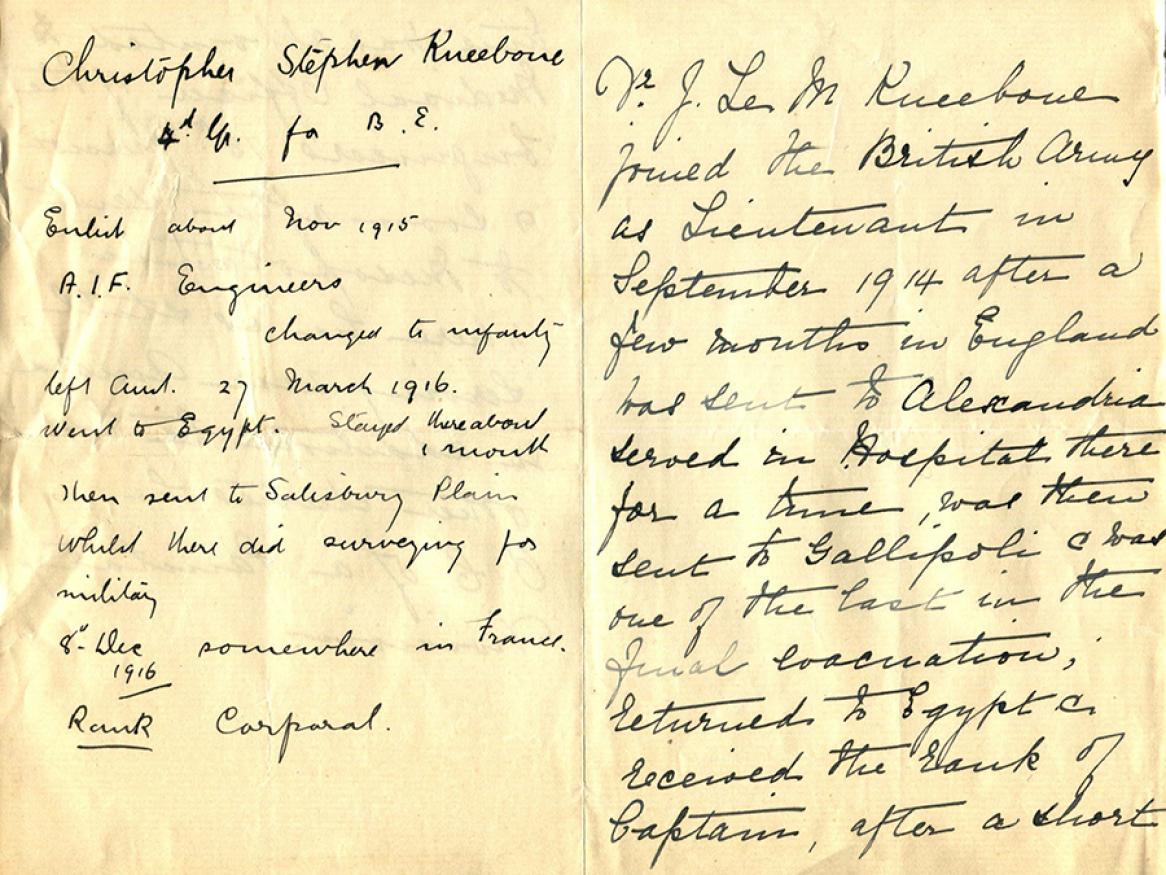 Christopher Stephen Kneebone
for B.E.
Enlist about Nov 1915
A.I.F. Engineers
changed to infantry
left Aust. 27 March 1916.
Went to Egypt. Stayed there about
1 month
then sent to Salisbury Plain
whilst there did surveying for
military
8th Dec somewhere in France.
1916
Rank Corporal.
Dr. J. Le M Kneebone
joined the British Army
as Lieutenant in
September 1914 after a
few months in England
was sent to Alexandria
served in Hospital there
for a time, was then
sent to Gallipoli & was
one of the last in the
final evacuation,
returned to Egypt &
received the rank of
Captain, after a short